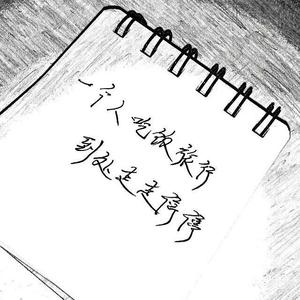 一个人吃饭旅行
到处走走停停